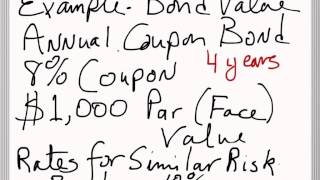 Example - Bond Value
Annual Coupon Bond
8% Coupon 4 years
$1,000 Par (Face)
Value
Rates for Similar Risk